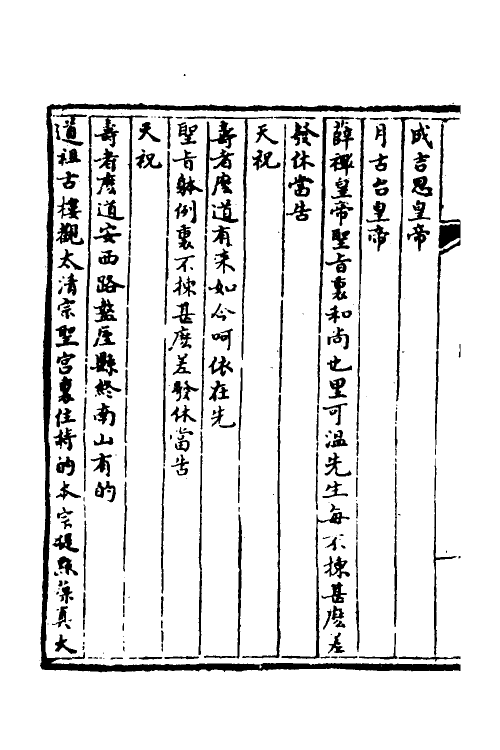 成吉思皇帝
月古台皇帝
薛禪皇帝聖旨裏和尚也里可溫先生每不揀甚麽差
發休當告
天祝
壽者麽道有来如今呵依在先
聖旨體例裏不揀甚麽差發休當告
天祝
壽者麽道安西路盩厔縣終南山有的
道祖古樓觀太清宗聖宮裏住持的本宗提點藻真大